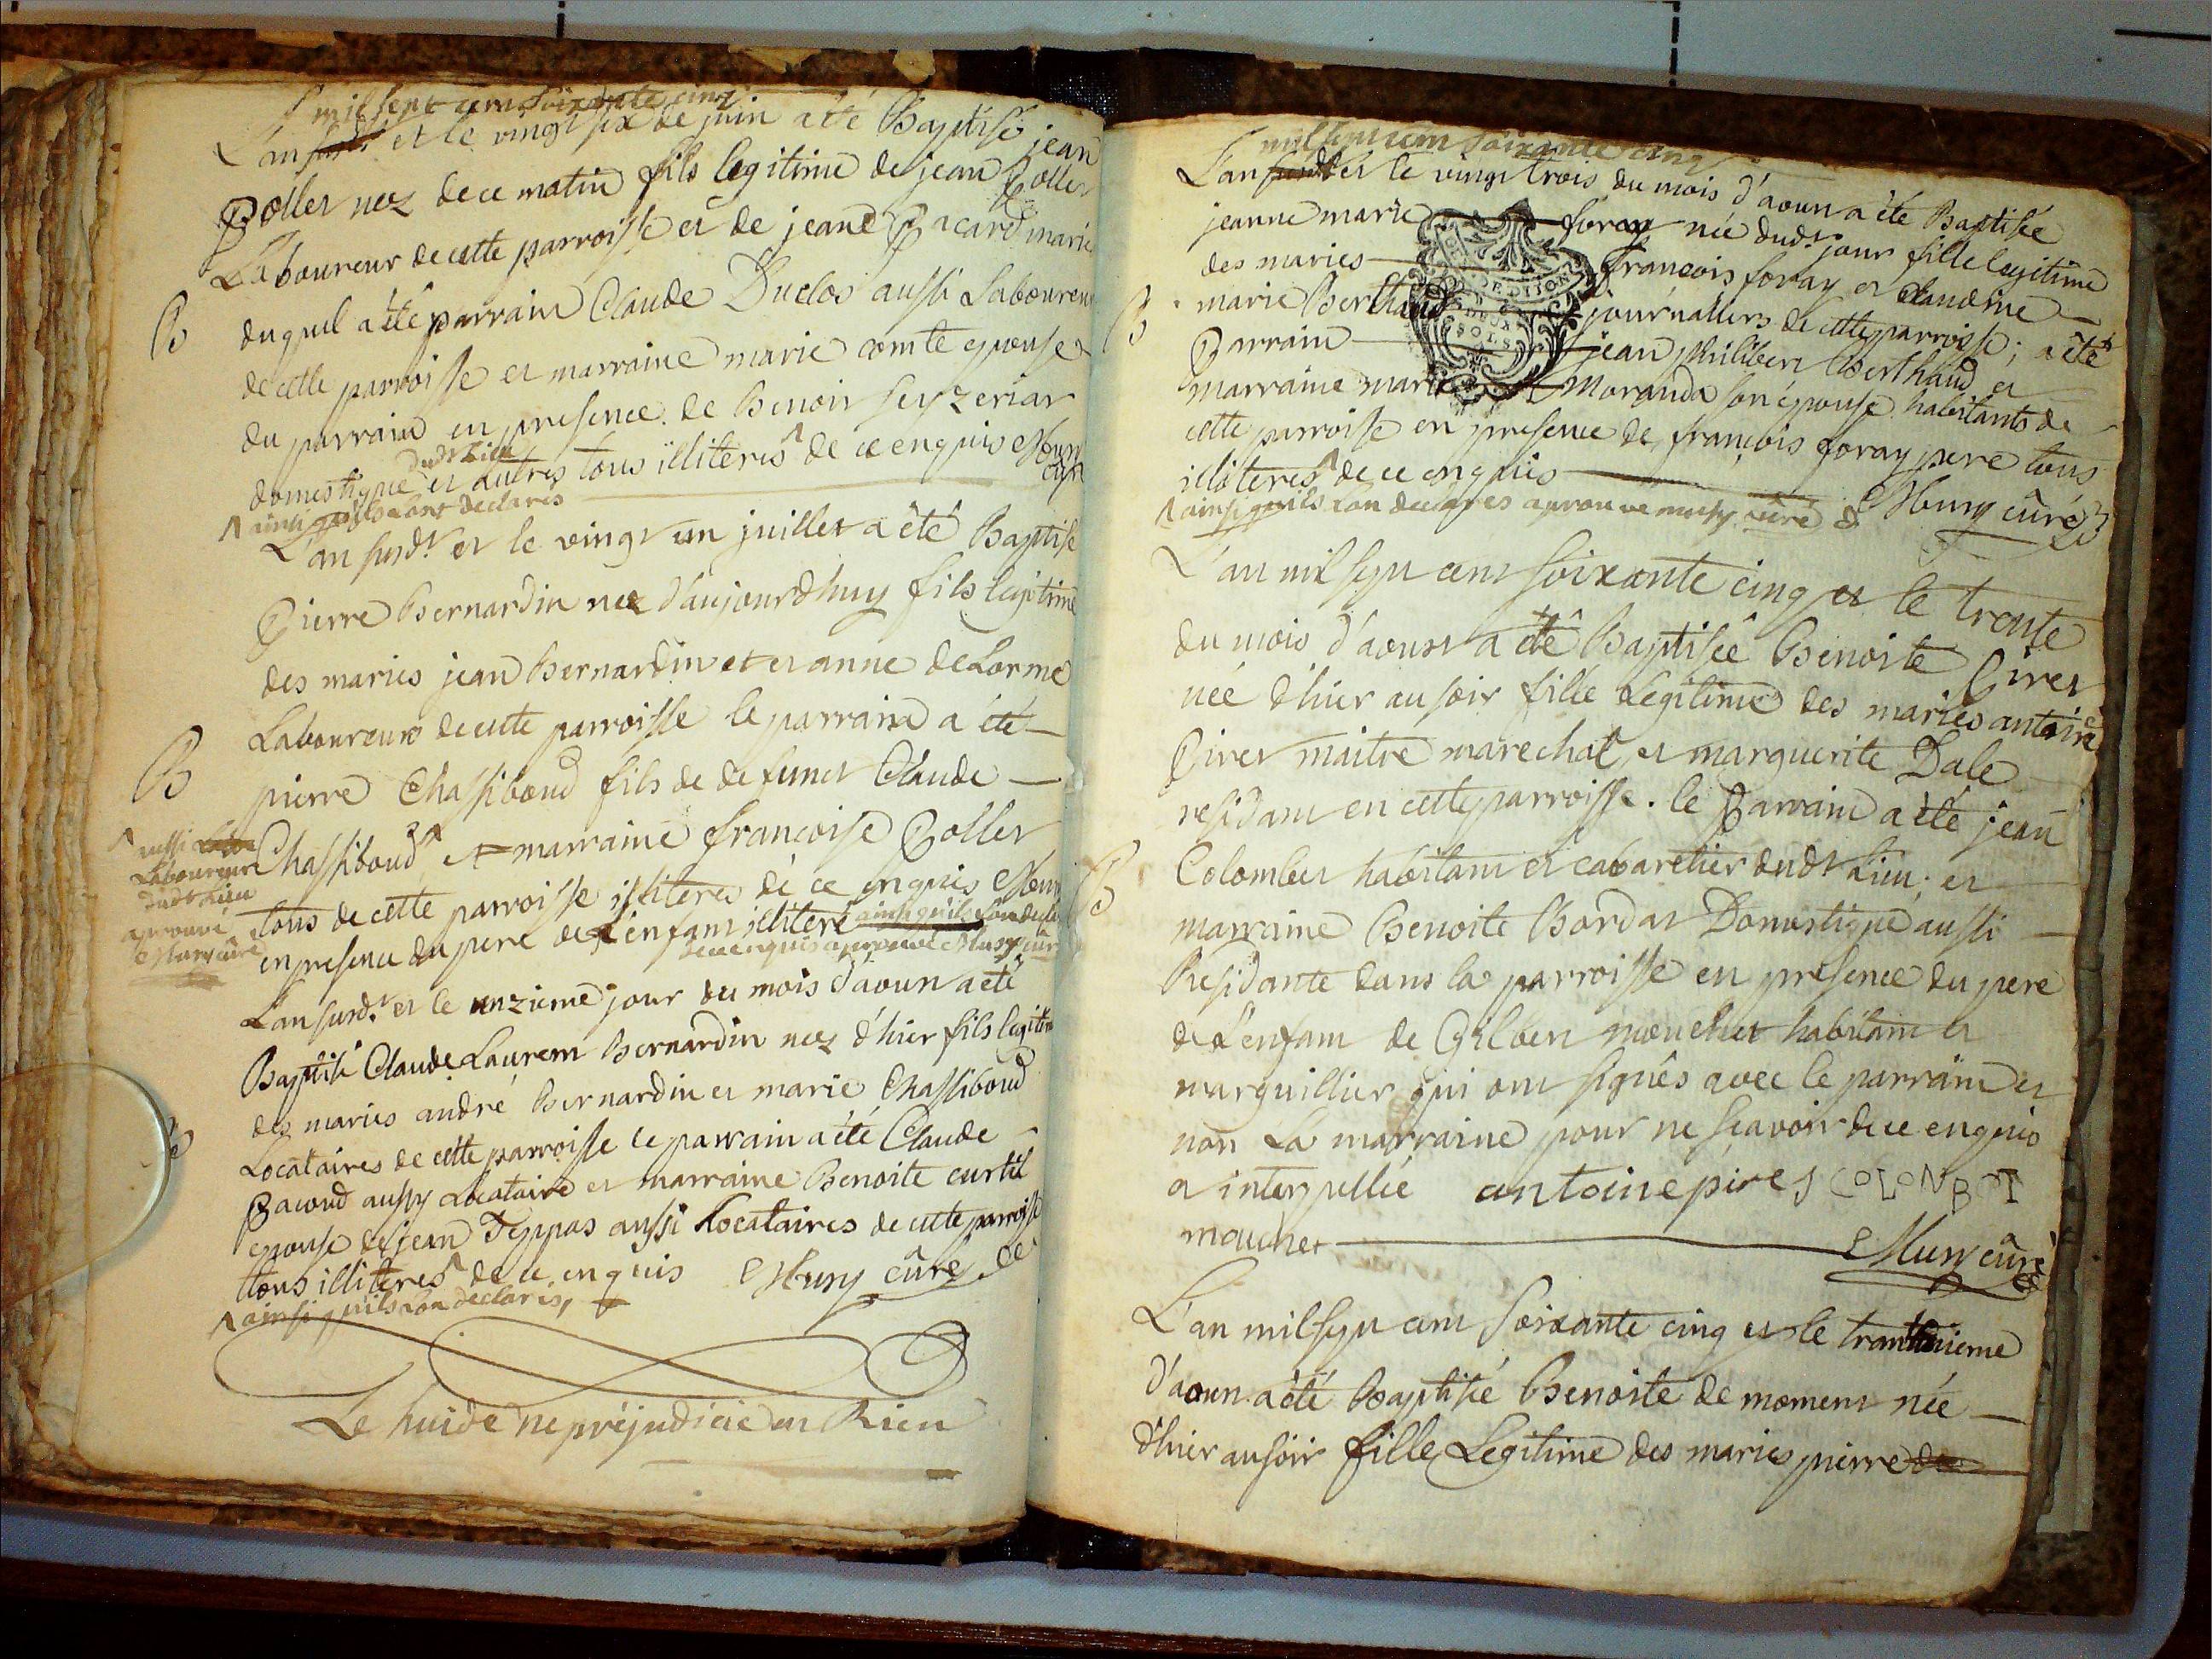 mil sept cent soixante cinq
L'an susdt et le vingt six de juin a été Baptisé jean
Poller nez de ce matin fils legitime de jean Poller
Laboureur de cette parroisse et de jeane Pacard marie
B duquel a été parrain Claude Duclos aussi Laboureur
de cette parroisse et marraine marie comte epouse
du parrain en presence de Benoit Seyzeriat
dudt Lieu
domestique et autres tous illiteres ^ de ce enquis Musy
curé
^ ainsi quils l'ont declarés
L'an susdt. et le vingt un juillet a été Baptisé
Pierre Bernardin nez d'aujourdhuy fils legitime
des maries jean Bernardin et et anne deLorme
Laboureurs de cette parroisse le parrain a été
B pierre Chassiboud fils de defunct Claude
Chassiboud ^ et marraine francoise Poller
^ aussi
Laboureur
dudt Lieu
aprouvé
Musy curé
tous de cette parroisse illiteres de ce enquis Musy
en presence du pere de l'enfant illiteré ainsi quils l'on declaré
de ce enquis aprouvé Musy curé
L'an susdt. et le unzieme jour du mois d'aoust a été
Baptisé Claude Laurent Bernardin nez d'hier fils legitime
des maries andré Bernardin et marie Chassiboud
B Locataires de cette parroisse le parrain a été Claude
Pacoud aussy Locataire et marraine Benoite curtil
epouse de jean Teppas aussi Locataires de cette parroisse
tous illiteres ^ de ce enquis Musy curé
^ ainsi quils l'on declarés,
Le huide ne préjudicie en Rien
mil sept cent soixante cinq
L'an susdt et le vingt trois du mois d'aoust a été Baptisée
jeanne marie foray née dudt. jour fille legitime
des maries francois foray et claudine
B marie Berthaud journaliers de cette parroisse ; a été
Parrain jean philibert Berthaud et
marraine marie Moranda son épouse habitants de
cette parroisse en presence de françois foray pere tous
DEUX
SOLS
illiteres ^ de ce enquis Musy curé
^ ainsi quils l'on declares aprouvé musy curé
L'an mil sept cent soixante cinq et le trente
du mois d'aoust a été Baptisée Benoite Pirer
née d'hier au soir fille Legitime des maries antoine
Pirer maitre marechal et marguerite Dale
residant en cette parroisse. le Parrain a été jean
B Colomber habitant et cabaretier dudt Lieu ; et
marraine Benoite Bordat Domestique aussi
Residante dans la parroisse en presence du pere
de L'enfant de Gilbert mouchet habitant et
marguillier qui ont signés avec le parrain et
non La marraine pour ne sçavoir de ce enquis
et interpellée antoine pires COLONBET
mouchet Musy curé
L'an mil sept cent soixante cinq et le trantunieme
d'aoust a été Baptisée Benoite de moment née
d'hier au soir fille Legitime des maries pierre de